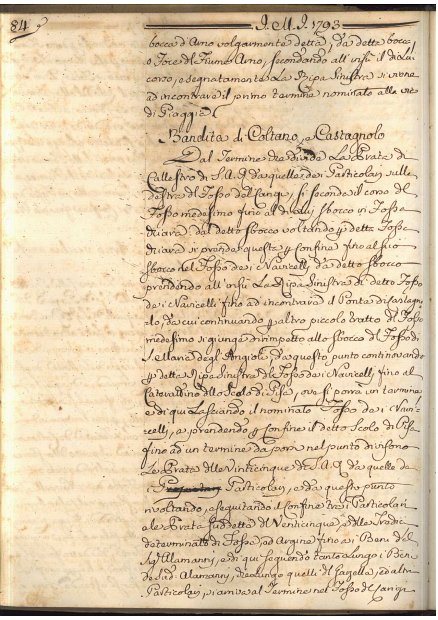 84
I. M. I. 1793
bocca d'Arno volgarmente detta, da detta bocca
o Foce del Fiume Arno, secondando all'insù il di lui
corso, e segnatamente La Ripa Sinistra si viene
ad incontrare il primo termine nominato alla
di Piaggia
Bandita di Coltano, e Castagnolo
Dal Termine che divide Le Prata di
S. A. R. da quelle dei Particolari sulla
destra del Fosso del Caligi, si seconda il corso del
Fosso medesimo fino al di lui sbocco in Fossa
chiara, dal detto sbocco voltando p detta Fossa
chiara si prende questa p confine fino al suo
sbocco nel Fosso dei Navicelli, da detto sbocco
prendendo all'insù La Ripa Sinistra di detto Fosso
dei Navicelli fino ad incontrare il Ponte di Castagno
lo, da cui continuando p altro piccolo tratto del Fosso
medesimo si giunge dirimpetto allo sbocco del Fosso di
degli Angioli, da questo punto continovando
p detta Ripa Sinistra del Fosso dei Navicelli fino al
dello Scolo di Pisa, ove si porrà un termine
e di qui Lasciando il nominato Fosso dei Navi-
celli, e prendendo p Confine il detto Scolo di Pisa
fino ad un termine da porre nel punto divisorio
Le Prata delle Venticinque di S. A. R. da quelle de
i Particolari, e da questo punto
rivoltando, e seguitando il Confine tra i Particolari
e le Prata suddette del Venticinque, e delle
determinato di Fosso, ed Argine fino ai Beni del
Sig. Alamanni, e di qui seguendo tanto Lungo i Beni
de Sud. Alamanni, che Lungo quelli del Gagella, ed altri
Particolari, si arriva al Termine nel Fosso del Caligi